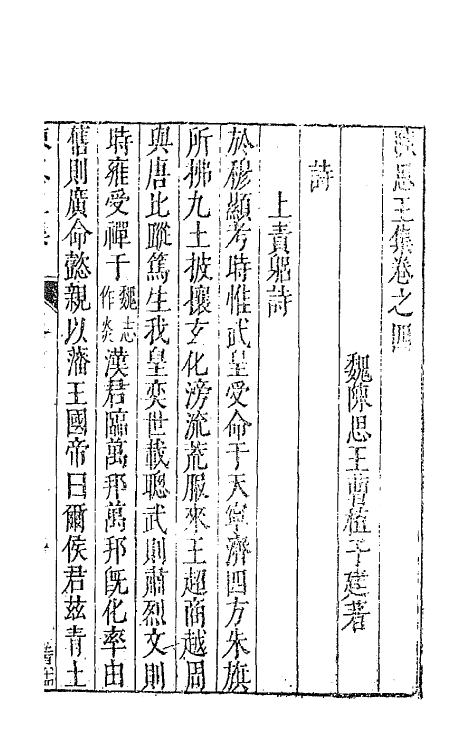 陳思王集卷之四
魏陳思王曹植子建著
詩
上責躬詩
於穆顯考時惟武皇受命于天寧濟四方朱旗
所拂九土披攘玄化滂流荒服來王超商越周
與唐比蹤篤生我皇奕世載聰武則肅烈文則
時雍受禪于魏志作炎漢君臨萬邦萬邦旣化率由
舊則廣命懿親以藩王國帝曰爾侯君茲青土